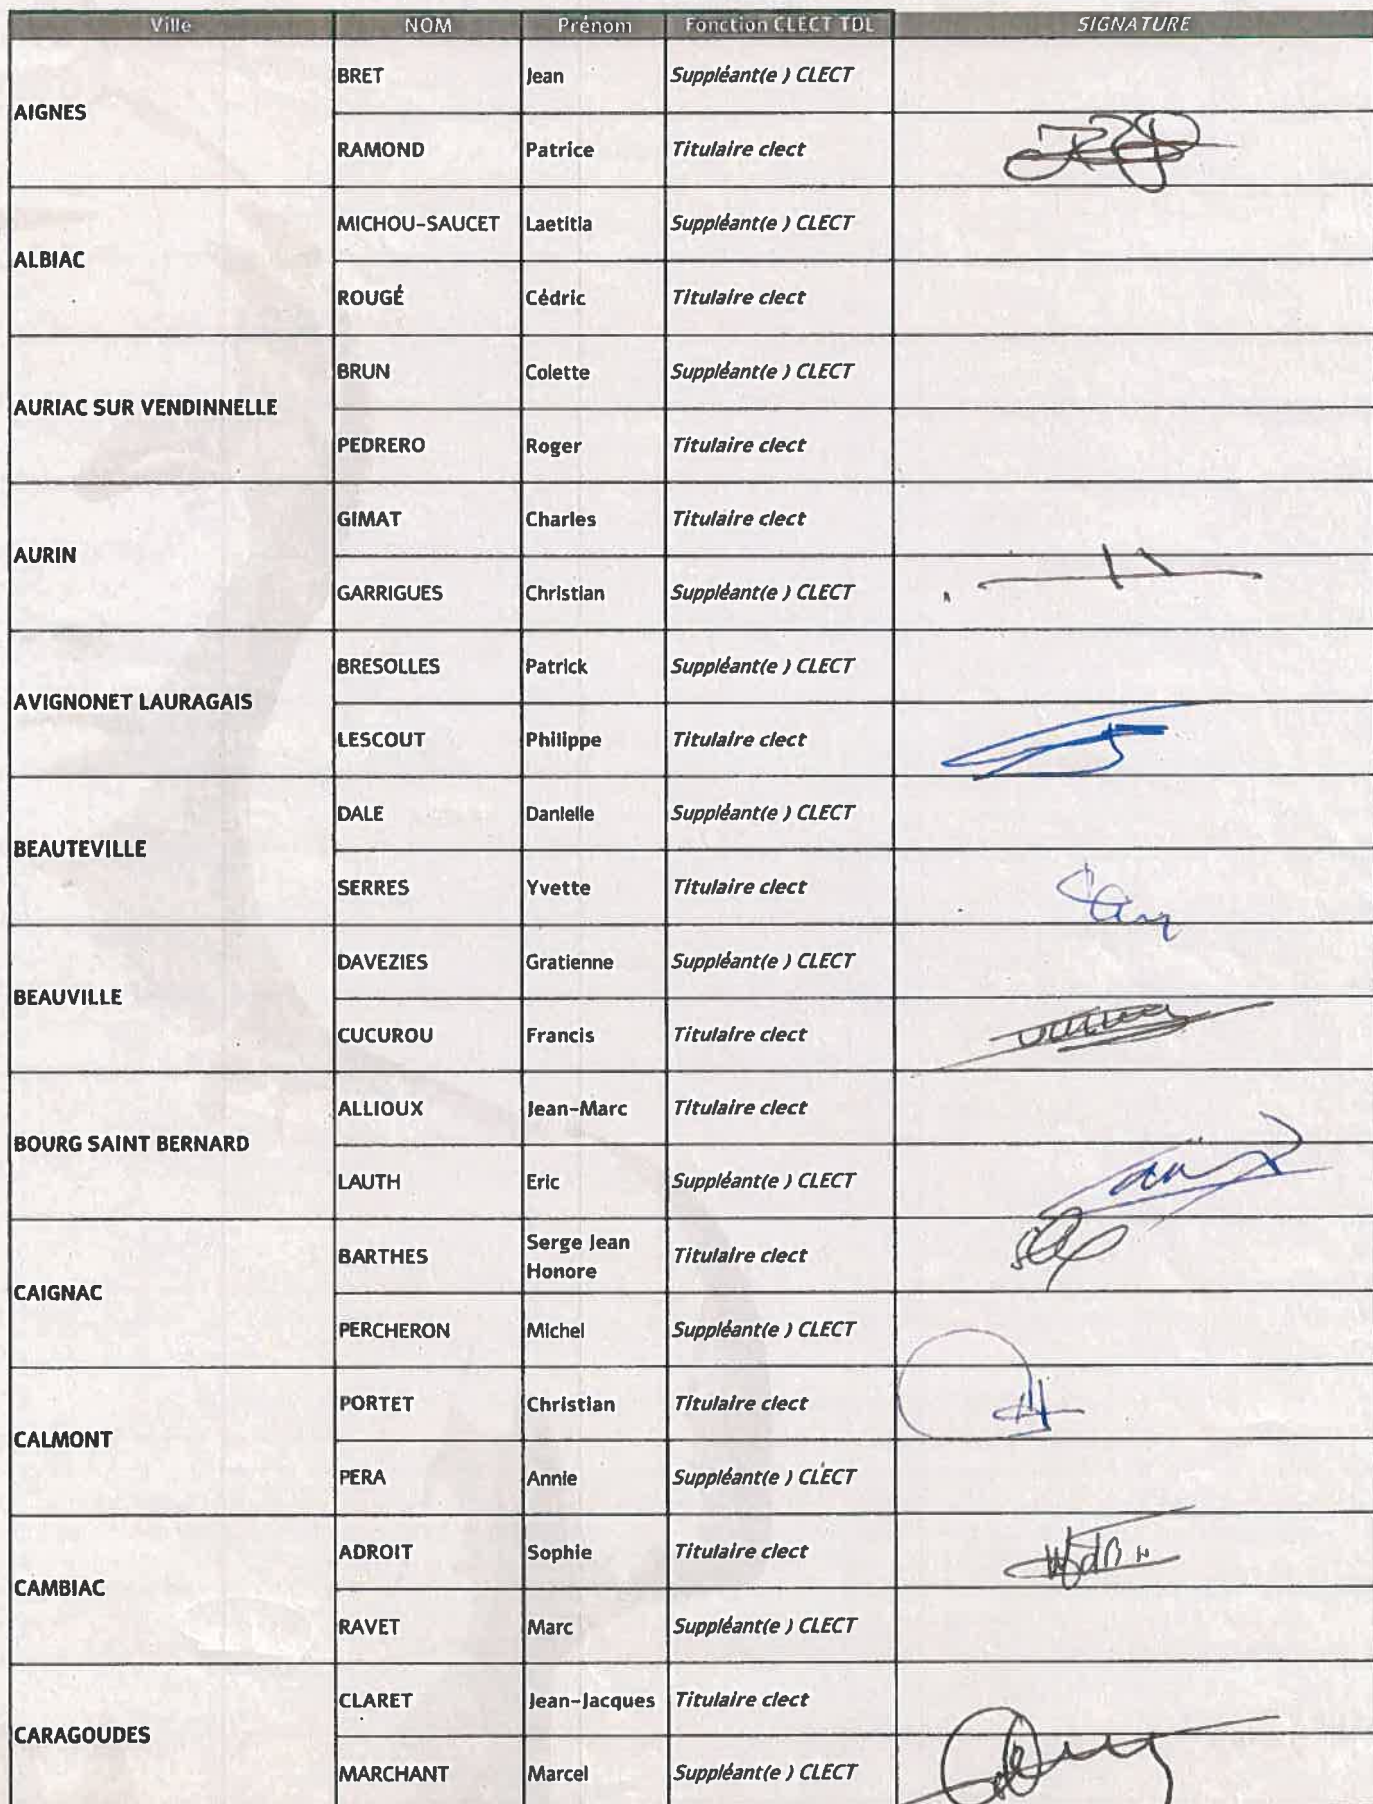 Ville NOM Prénom Fonction CLECT TDL SIGNATURE
AIGNES
BRET Jean Suppléant(e ) CLECT
RAMOND Patrice Titulaire clect
ALBIAC
MICHOU-SAUCET Laetitia Suppléant(e ) CLECT
ROUGÉ Cédric Titulaire clect
AURIAC SUR VENDINNELLE
BRUN Colette Suppléant(e ) CLECT
PEDRERO Roger Titulaire clect
AURIN
GIMAT Charles Titulaire clect
GARRIGUES Christian Suppléant(e ) CLECT
AVIGNONET LAURAGAIS
BRESOLLES Patrick Suppléant(e ) CLECT
LESCOUT Philippe Titulaire clect
BEAUTEVILLE
DALE Danielle Suppléant(e ) CLECT
SERRES Yvette Titulaire clect
BEAUVILLE
DAVEZIES Gratienne Suppléant(e ) CLECT
CUCUROU Francis Titulaire clect
BOURG SAINT BERNARD
ALLIOUX Jean-Marc Titulaire clect
LAUTH Eric Suppléant(e ) CLECT
CAIGNAC
BARTHES Serge Jean
Honore Titulaire clect
PERCHERON Michel Suppléant(e ) CLECT
CALMONT
PORTET Christian Titulaire clect
PERA Annie Suppléant(e ) CLECT
CAMBIAC
ADROIT Sophie Titulaire clect
RAVET Marc Suppléant(e ) CLECT
CARAGOUDES
CLARET Jean-Jacques Titulaire clect
MARCHANT Marcel Suppléant(e ) CLECT